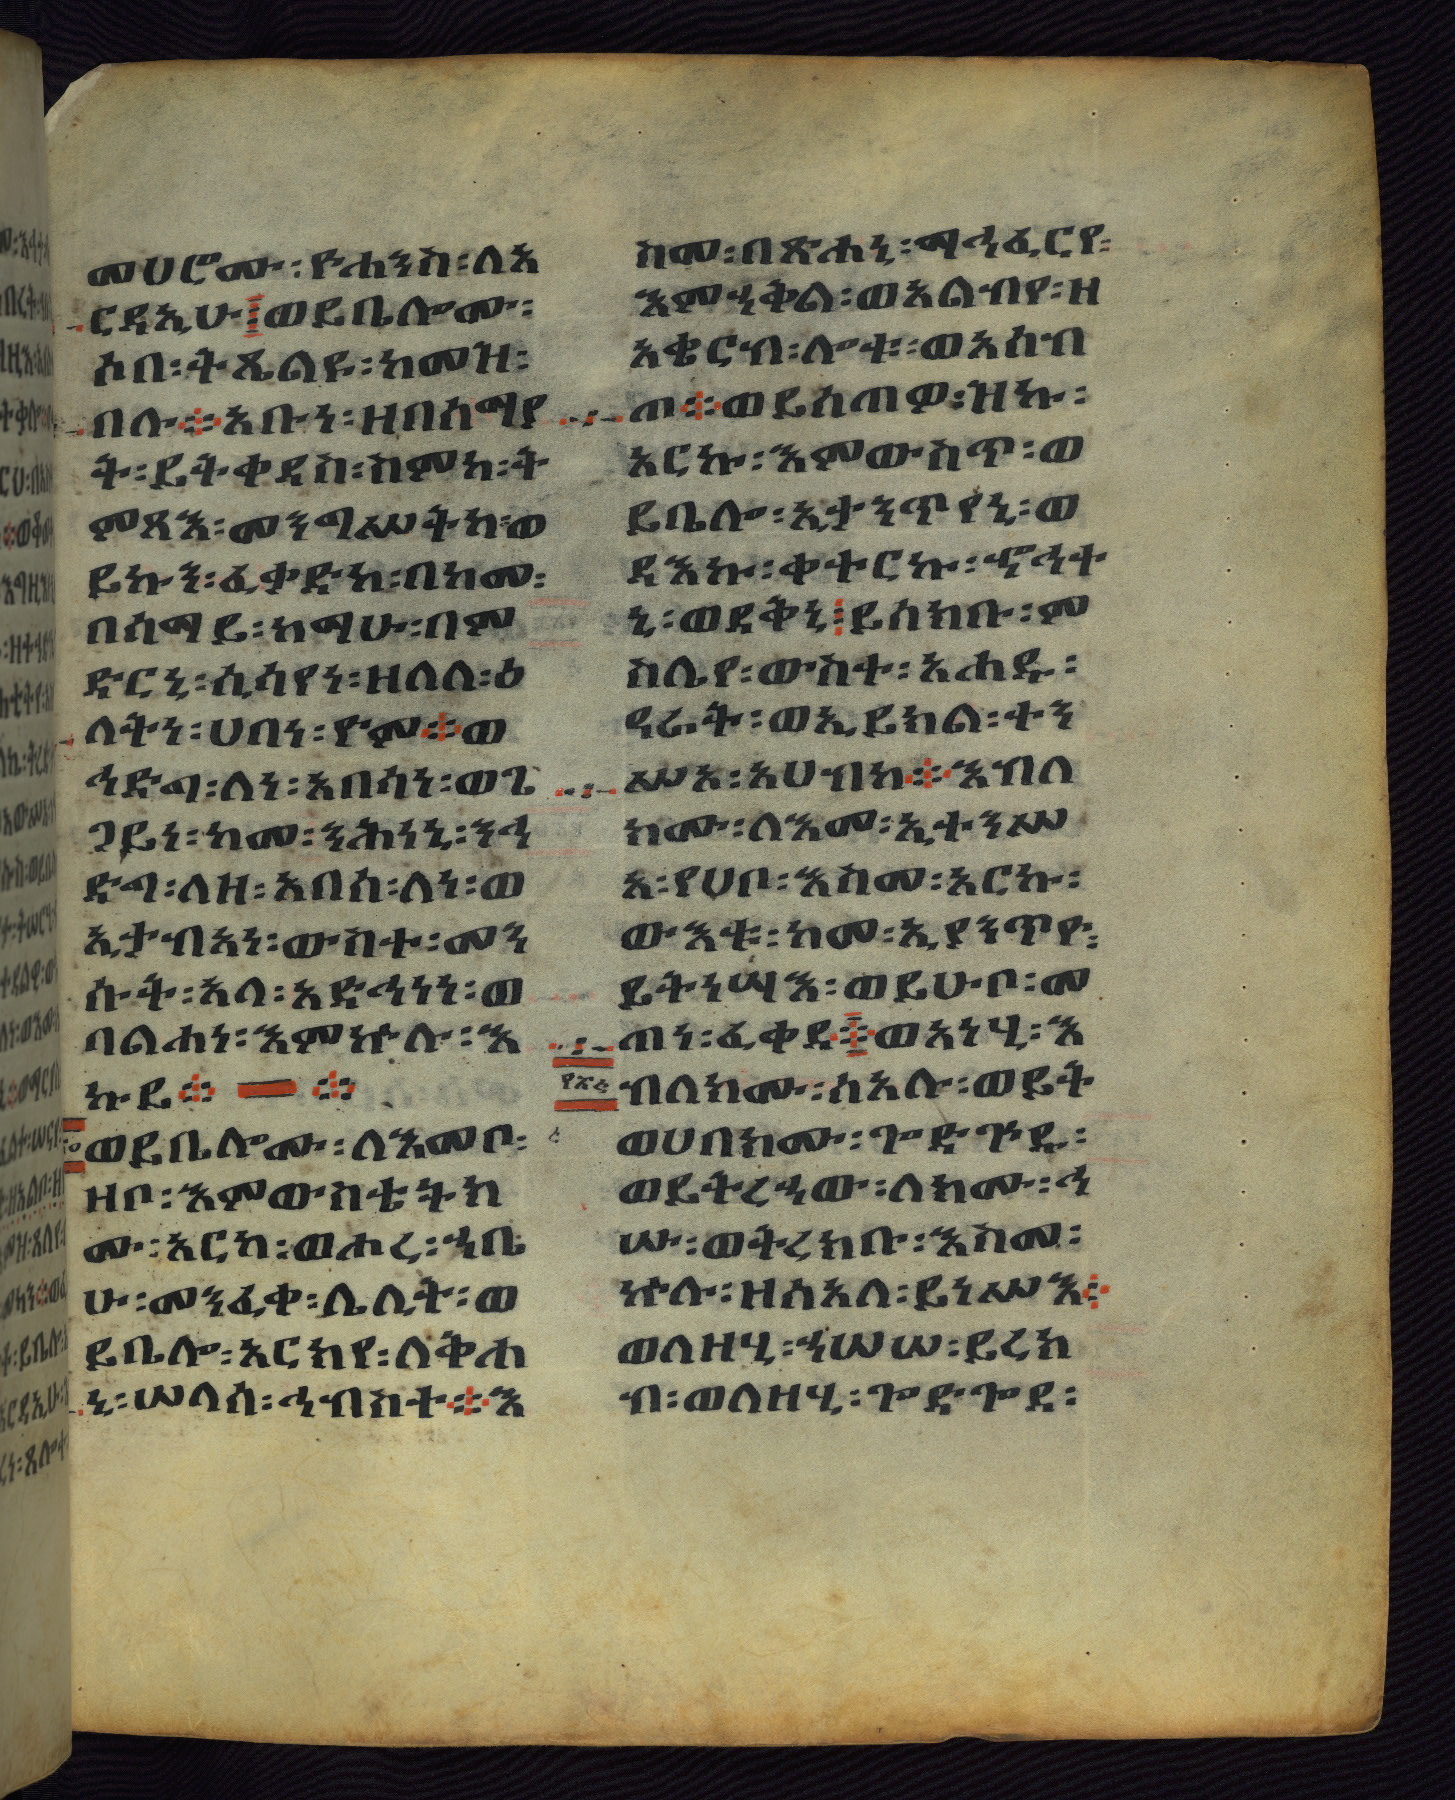 መሀሮሙ፡ዮሐንስ፡ለአ
ርዳኢሁ፡ወይቤሎሙ፡
ሶበ፡ትጼልዩ፡ከመዝ፡
በሉ፨አቡነ፡ዘበሰማያ
ት፡ይትቀዳስ፡ስምከ፡ት
ምጻእ፡መንግሥትከ፡ወ
ይኩን፡ፈቃድከ፡በከመ፡
በሰማይ፡ከማሁ፡በም
ድርኒ፡ሲሳየነ፡ዘለለ፡ዕ
ለትነ፡ሀበነ፡ዮም፨ወ
ኅድግ፡ለነ፡አበሳነ፡ወጌ
ጋየነ፡ከመ፡ንሕነኒ፡ንኅ
ድግ፡ለዘ፡አበሰ፡ለነ፡ወ
ኢታብአነ፡ውስተ፡መን
ሱት፡አላ፡አድኅነነ፡ወ
ባልሐነ፡እምኵሉ፡እ
ኩይ፨፨
ወይቤሎሙ፡ለእመቦ፡
ዘቦ፡እምውስቴትክ
ሙ፡አርከ፡ወሐረ፡ኀቤ
ሁ፡መንፈቀ፡ሌሊት፡ወ
ይቤሎ፡አርክየ፡ለቅሐ
ኒ፡ሠለሰ፡ኅብስተ፨እ
ስመ፡በጽሐኒ፡ማኅፈርየ፡
እምኀቅል፡ወአልብየ፡ዘ
አቄርብ፡ሎቱ፡ወአስብ
ጦ፨ወይሰጠዎ፡ዝኩ፡
አርኩ፡እምውስጥ፡ወ
ይቤሎ፡ኢታንጥየኒ፡ወ
ዳእኩ፡ቀተርኩ፡ኆኅተ
ኒ፡ወደቅኒ፡ይሰክቡ፡ም
ስሌየ፡ውስተ፡አሐዱ፡
ዓራት፡ወኢይክል፡ተን
ሥአ፡አሀብከ፨እብለ
ክሙ፡ለእመ፡ኢተንሥ
አ፡የሀቦ፡እስመ፡አርኩ፡
ውእቱ፡ከመ፡ኢያንጥዮ፡
ይትነሣእ፡ወይሁቦ፡መ
ጠነ፡ፈቀደ፡ወአነሂ፡እ
ብለክሙ፡ሰአሉ፡ወይት
ወሀበክሙ፡ጐድጕዱ፡
ወይትረኀው፡ለክሙ፡ኀ
ሡ፡ወትረክቡ፡እስመ፡
ኵሉ፡ዘሰአለ፡ይነሥእ፨
ወለዘሂ፡ኀሠሠ፡ይረክ
ብ፡ወለዘሂ፡ጐድጐደ፡